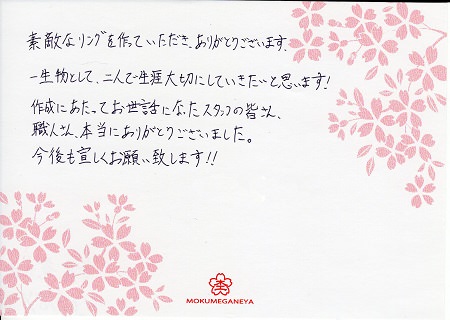 素敵なリングを作っていただき、ありがとうございます。
一生物として、二人で生涯大切にしていきたいと思います!
作成にあたってお世話になったスタッフの皆さん、
職人さん、本当にありがとうございました。
今後も宜しくお願い致します!!
杢
MOKUMEGANEYA